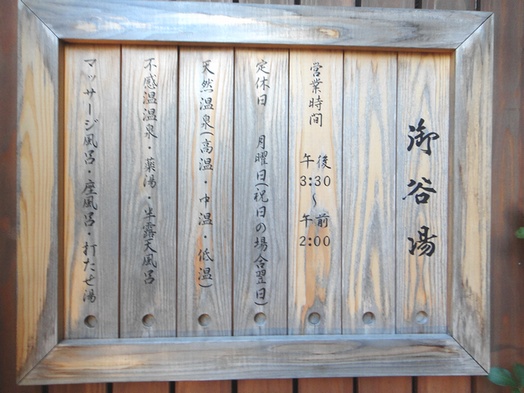 御谷湯
営業時間 午後3:30〜午前2:00
定休日 月曜日(祝日の場合翌日)
天然温泉(高温・中温・低温)
不感温温泉・薬湯・半露天風呂
マッサージ風呂・座風呂・打たせ湯